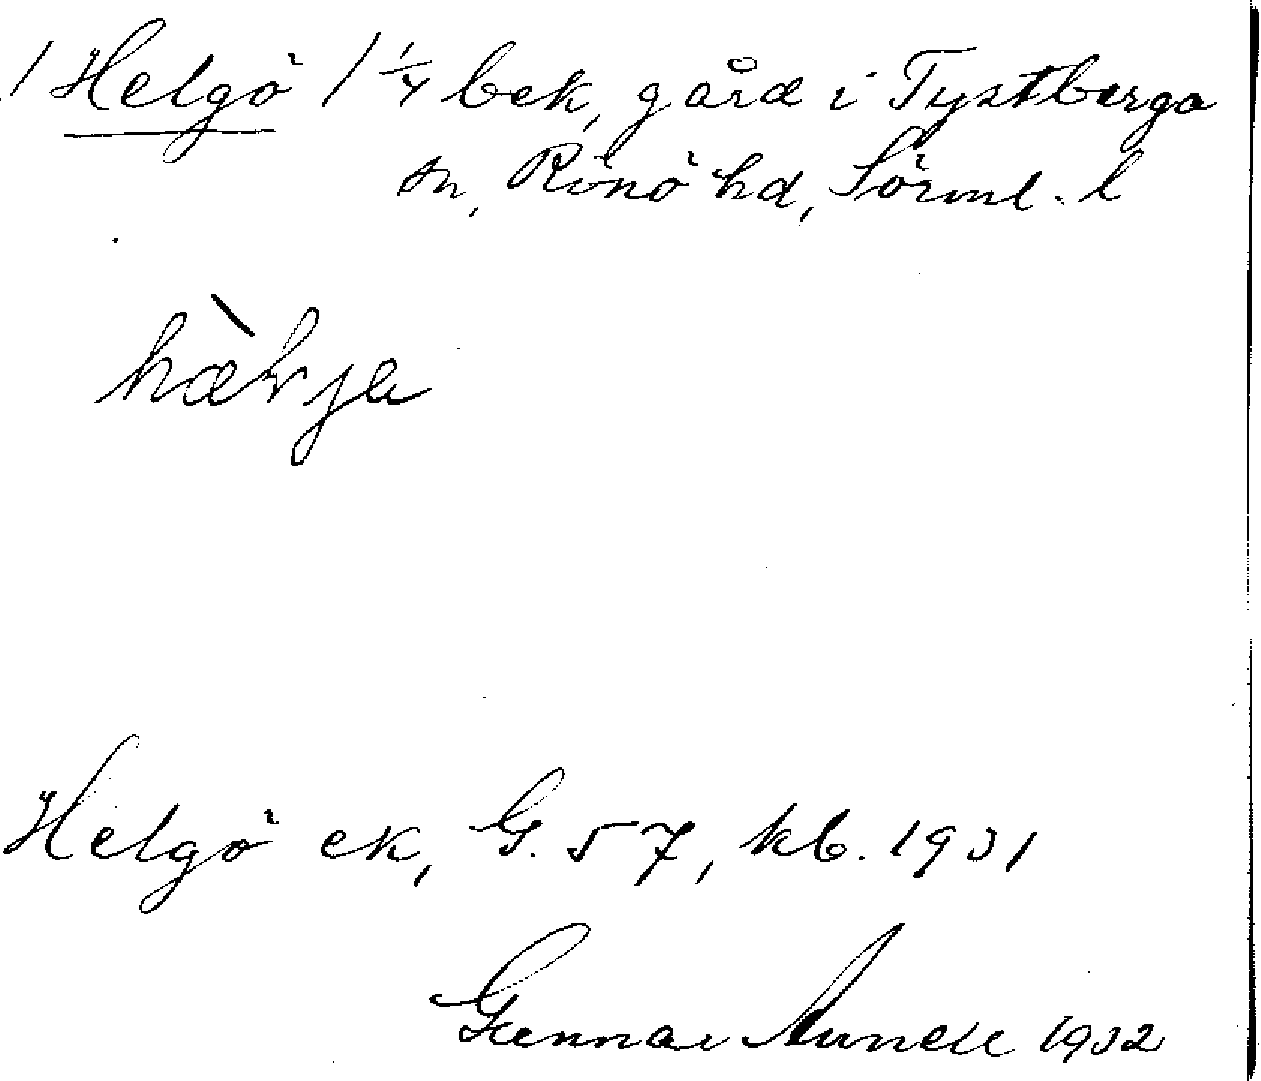 / Helgö / 1/4 bek, gård i Tystberga
sn, Rönö hd, Sörml. l
Helgö ek, G. 57, kb. 1931
Gunnar Aunell 1932